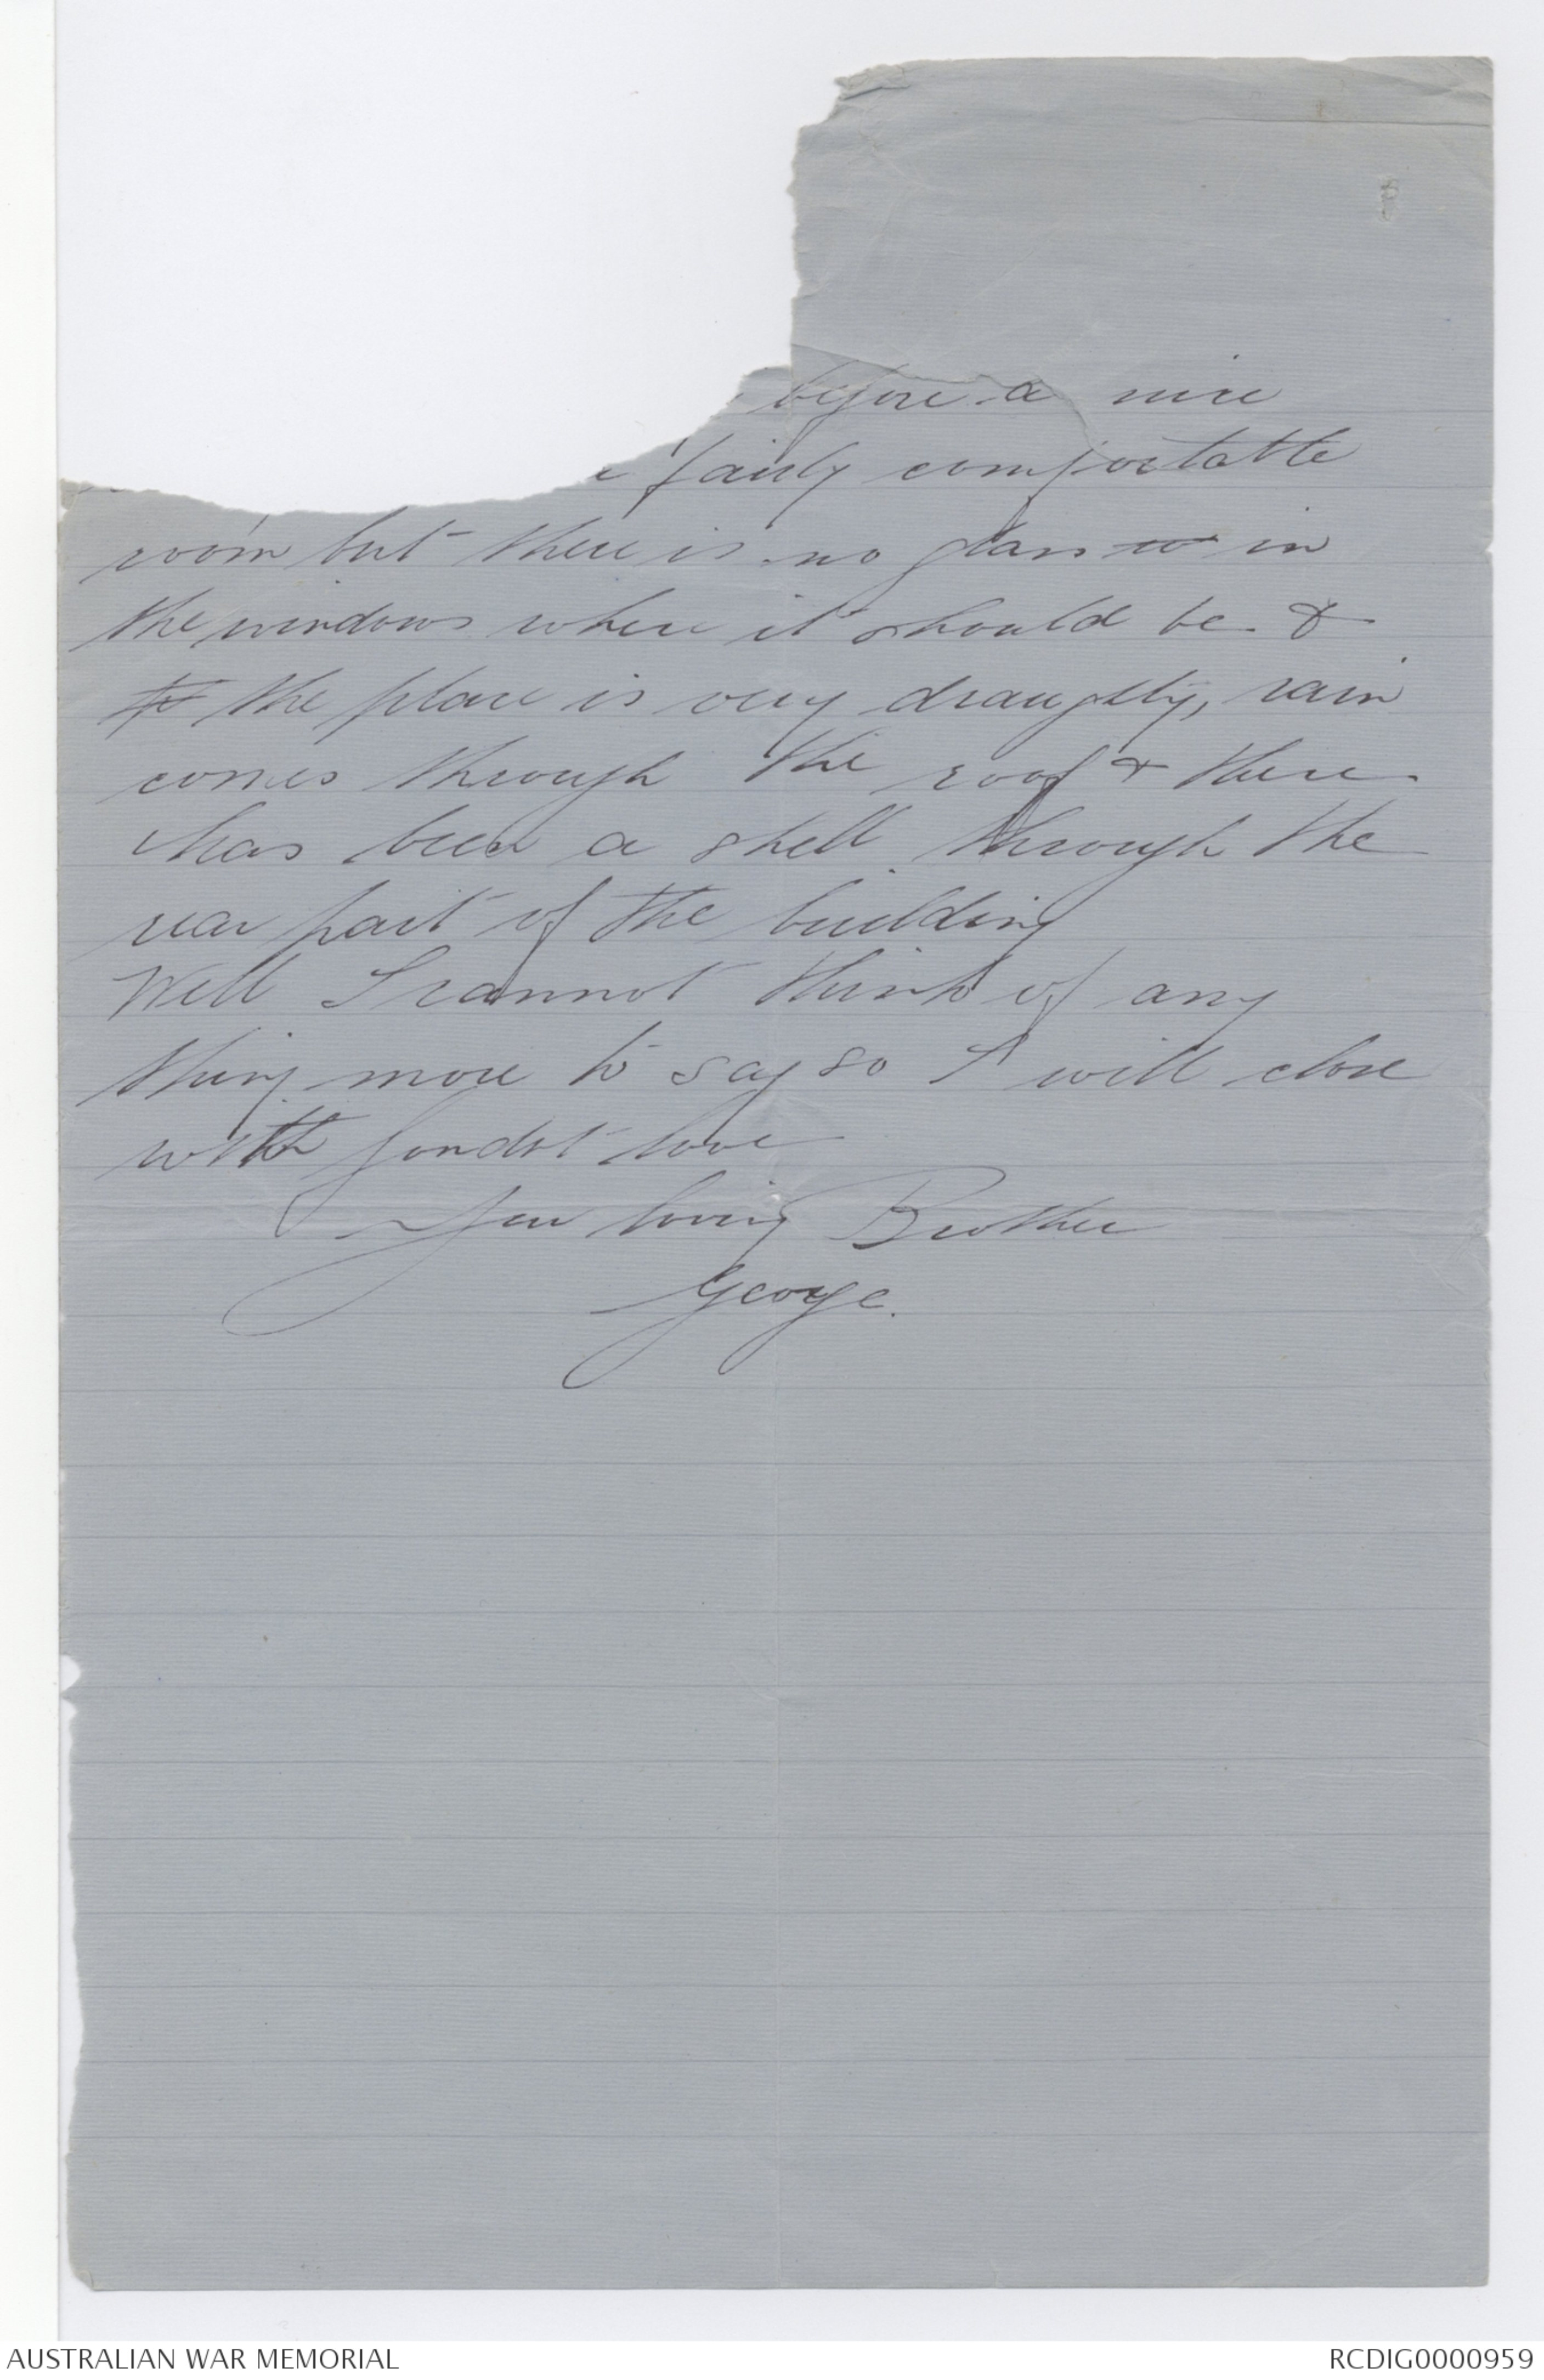 before a nice
fairly comfortable
room but there is no glass in
the windows where it should be &
the place is very draughty, rain
comes through the roof & there
has been a shell through the
rear part of the building
Well I cannot think of any
thing more to say so I will close
with fondst love
Your loving Brother
George.
AUSTRALIAN WAR MEMORIAL
RCDIG0000959